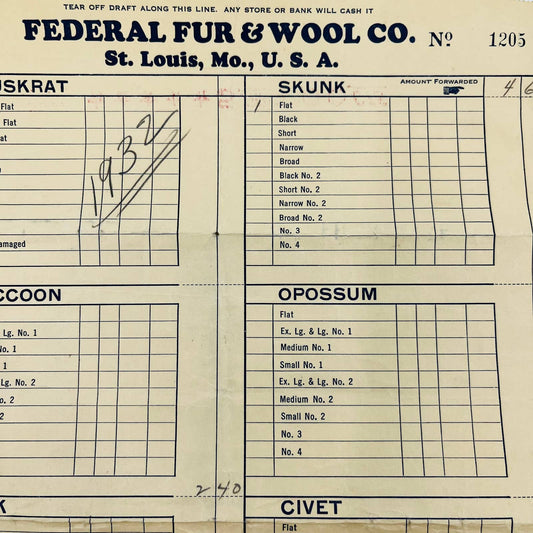 TEAR OFF DRAFT ALONG THIS LINE. ANY STORE OR BANK WILL CASH IT
FEDERAL FUR & WOOL CO. Nº 1205
St. Louis, Mo., U. S. A.
USKRAT
Flat
Flat
at
amaged
1932
SKUNK AMOUNT FORWARDED 4 6
1 Flat
Black
Short
Narrow
Broad
Black No. 2
Short No. 2
Narrow No. 2
Broad No. 2
No. 3
No. 4
CCOON
Flat
Lg. No. 1
No. 1
1
Lg. No. 2
No. 2
2
2 40
OPOSSUM
Flat
Ex. Lg. & Lg. No. 1
Medium No. 1
Small No. 1
Ex. Lg. & Lg. No. 2
Medium No. 2
Small No. 2
No. 3
No. 4
K
CIVET
Flat